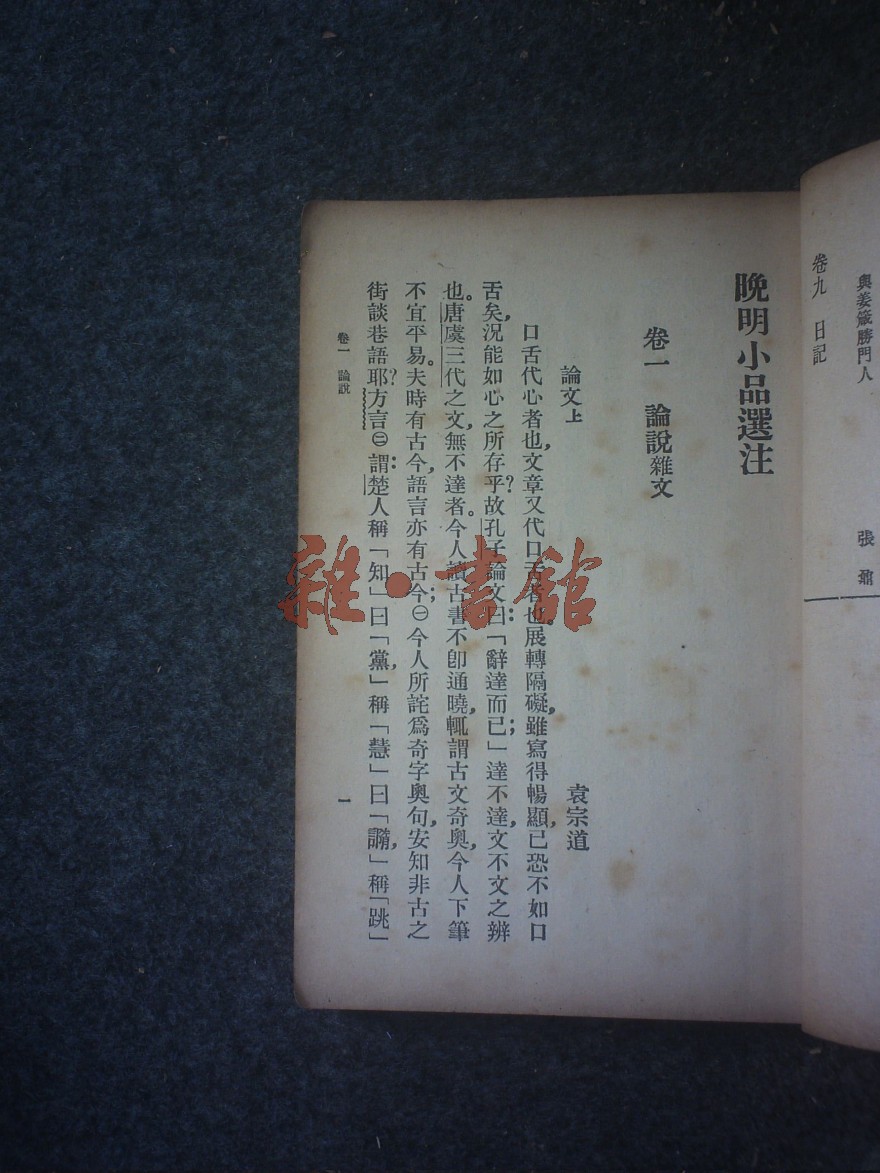 與姜箴勝門人
張鼐
卷九 日記
晚明小品選注
卷一 論說雜文
論文上
袁宗道
口舌代心者也,文章又代口舌者也。展轉隔礙,雖寫得暢顯,已恐不如口
舌矣,況能如心之所存乎?故孔子論文曰:「辭達而已」;達不達,文不文之辨
也。唐虞三代之文,無不達者。今人讀古書不卽通曉,輒謂古文奇奧,今人下筆
不宜平易。夫時有古今,語言亦有古今;㊀今人所詫爲奇字奧句,安知非古之
街談巷語耶?方言㊁謂:楚人稱「知」曰「黨」,稱「慧」曰「䜏」,稱「跳」
卷一 論說
一
雜·書館